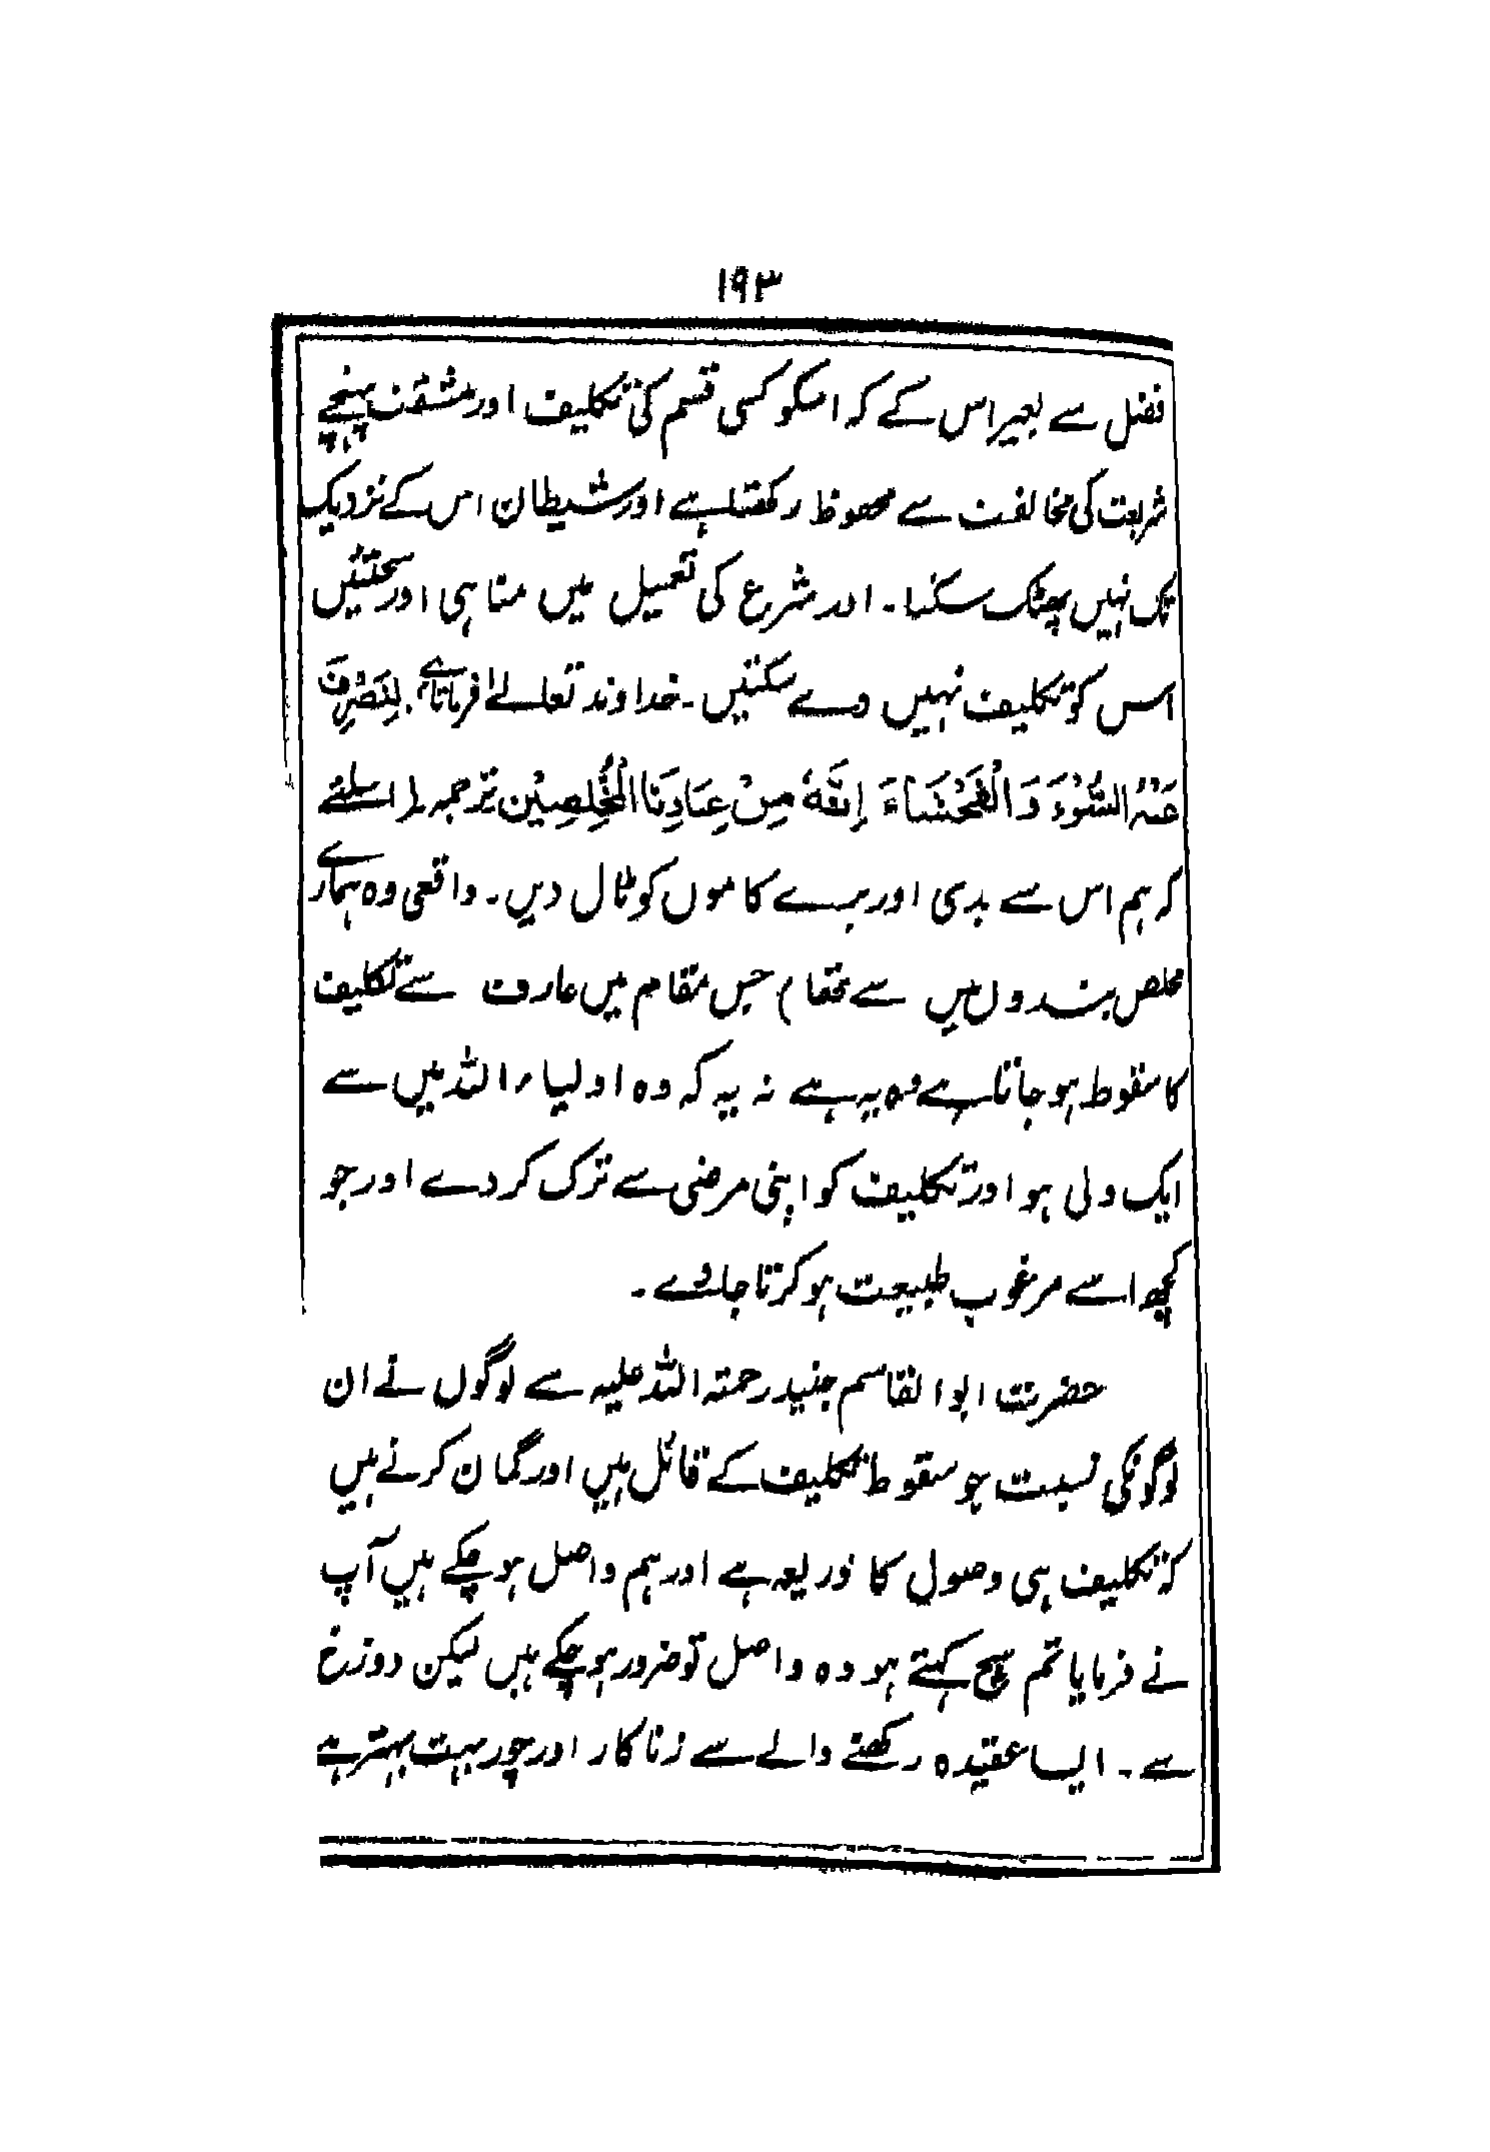 ۱۹۳
فضل سے بغیر اس کے کہ اسکو کسی قسم کی تکلیف اور مشقت پہنچے
شریعت کی مخالفت سے محفوظ رکھتا ہے اور شیطان اس کے نزدیک
تک نہیں پھٹک سکتا۔ اور شرع کی تعمیل میں مناہی اور سختیں
اس کو تکلیف نہیں دے سکتیں۔ خداوند تعالےٰ فرماتا ہے، لِنَصْرِفَ
عَنْہُ السُّوْءَ وَالْفَحْشَاءَ اِنَّهٗ مِنْ عِبَادِنَا الْمُخْلِصِیْن ترجمہ (اسلئے
کہ ہم اس سے بدی اور برے کاموں کو ٹال دیں۔ واقعی وہ ہمارے
مخلص بندوں میں سے تھا) جس مقام میں عارف سے تکلیف
کا سقوط ہو جاتا ہے وہ یہ ہے نہ یہ کہ وہ اولیاء اللہ میں سے
ایک ولی ہو اور تکلیف کو اپنی مرضی سے ترک کر دے اور جو
کچھ اسے مرغوب طبیعت ہو کرتا جاوے۔
حضرت ابو القاسم جنید رحمتہ اللہ علیہ سے لوگوں نے ان
لوگونکی نسبت جو سقوط تکلیف کے قائل ہیں اور گمان کرتے ہیں
کہ تکلیف ہی وصول کا ذریعہ ہے اور ہم واصل ہو چکے ہیں آپ
نے فرمایا تم سچ کہتے ہو وہ واصل تو ضرور ہو چکے ہیں لیکن دوزخ
سے۔ ایسا عقیدہ رکھنے والے سے زنا کار اور چور بہت بہتر ہے